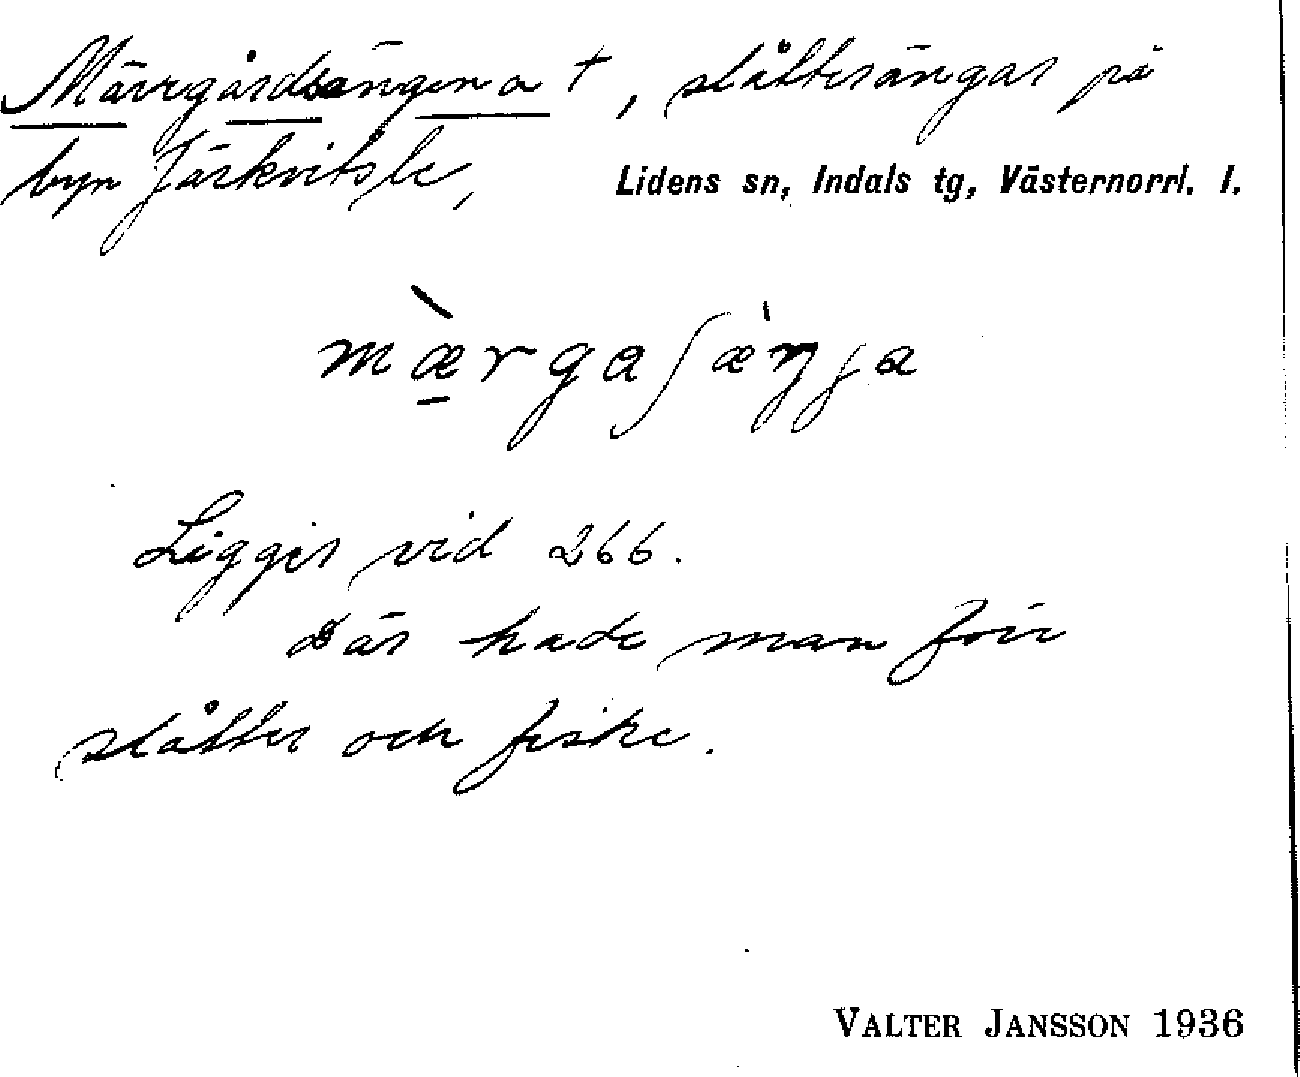 Märrgårdsängena †, slåtterängar på
byn Järkvitsle, Lidens sn, Indals tg, Västernorrl. l.
mæ̀rgaʃæ̀ŋja
Ligger vid 266.
Där hade man förr
slåtter och fiske.
VALTER JANSSON 1936